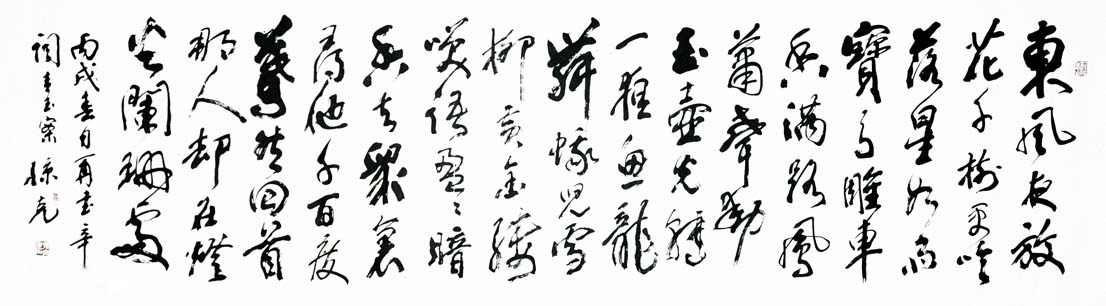 東風夜放
花千樹更吹
落星如雨
寶馬雕車
香滿路鳳
蕭聲動
玉壺光轉
一夜魚龍
舞蛾兒雪
柳黃金縷
笑語盈々暗
香去眾裏
尋他千百度
驀然回首
那人却在燈
火闌珊處
丙戌春月再書辛
詞青玉案